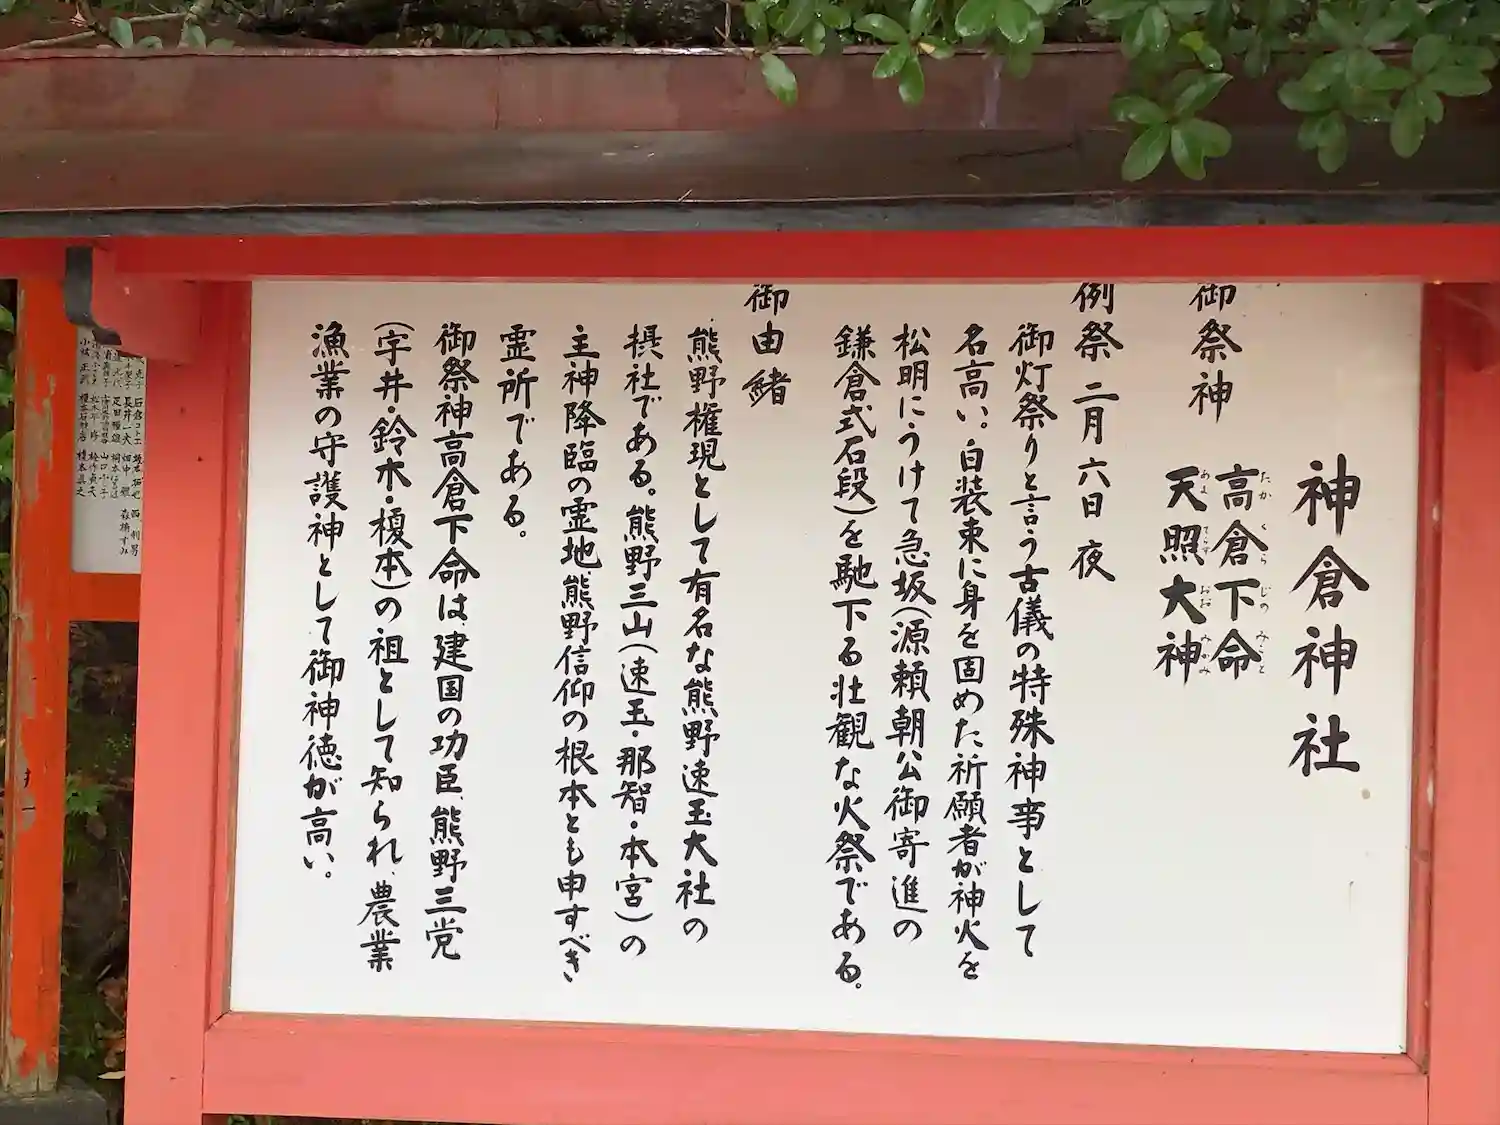 神倉神社
御祭神
高倉下命
たか くら じの みこと
天照大神
あま てらす おお みかみ
例祭 二月六日 夜
御灯祭りと言う古儀の特殊神事として
名高い。白装束に身を固めた祈願者が神火を
松明にうけて急坂(源頼朝公御寄進の
鎌倉式石段)を馳下る壮観な火祭である。
御由緒
熊野権現として有名な熊野速玉大社の
摂社である。熊野三山(速玉・那智・本宮)の
主神降臨の霊地熊野信仰の根本とも申すべき
霊所である。
御祭神高倉下命は、建国の功臣、熊野三党
(宇井・鈴木・榎本)の祖として知られ、農業
漁業の守護神として御神徳が高い。